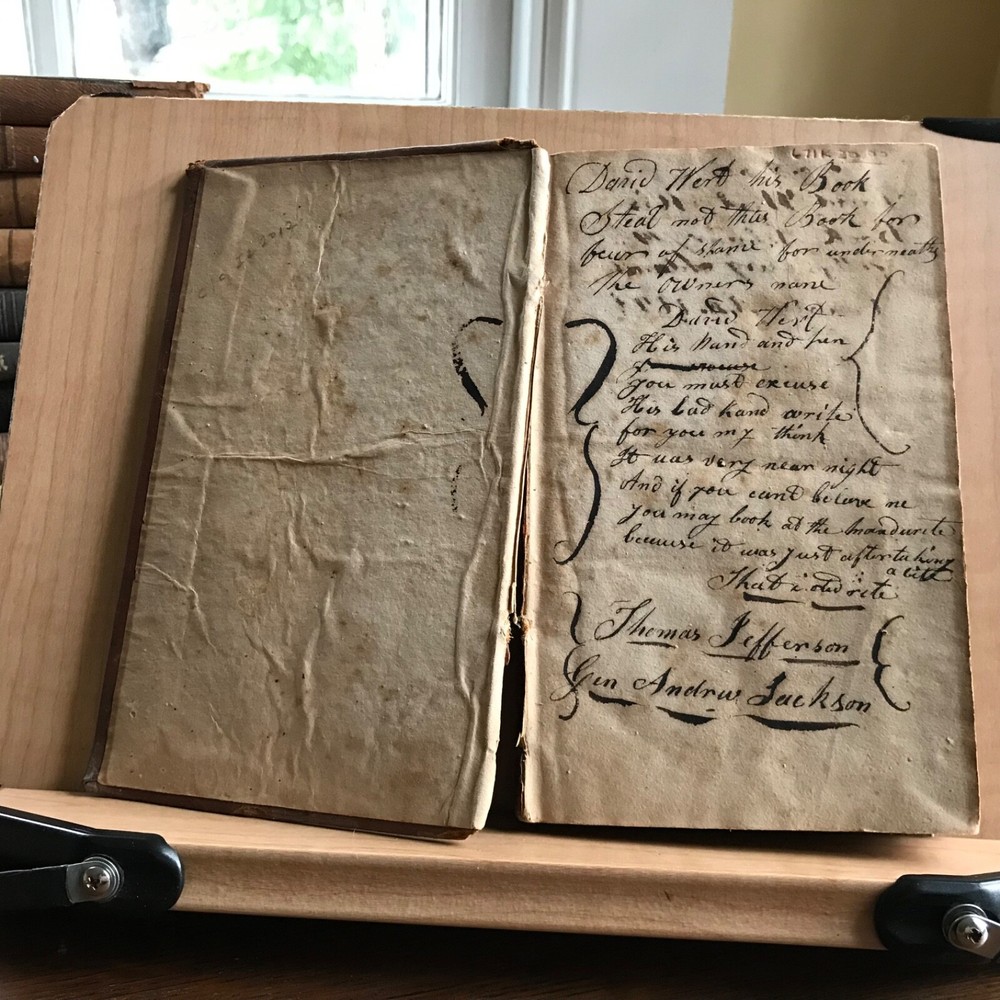 David Wert his Book
Steal not this Book for
fear of Shame for underneath
the owners name
David Wert
His hand and pen
you must excuse
His bad hand write
for you my think
It was very near night
And if you cant beleve me
you may look at the handwrite
because it was just after taking
a
That i
Thomas Jefferson
Gen Andrew Jackson